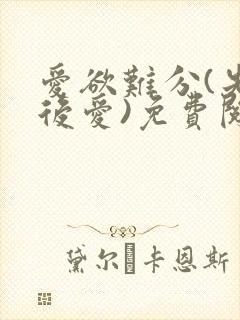 愛欲難分(先
後愛)免費閱
黛尔 卡恩斯